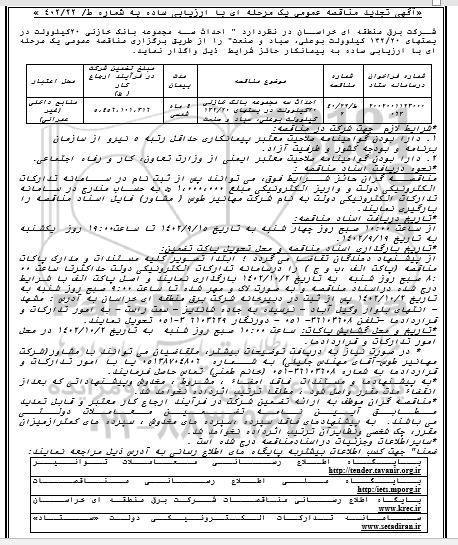 «آگهی تجدید مناقصه عمومی یک مرحله ای با ارزیابی ساده به شماره ط/ ۴۰۲/۲۲»
شرکت برق منطقه ای خراسان در نظردارد " احداث سه مجموعه بانک خازنی ۲۰کیلوولت در
پستهای ۱۳۲/۲۰ کیلوولت بوعلی، صیاد و صنعت" را از طریق برگزاری مناقصه عمومی یک مرحله
ای با ارزیابی ساده به پیمانکار حائز شرایط ذیل واگذار نماید.
شماره فراخوان درسامانه ستاد
شماره مناقصه
موضوع مناقصه
مدت پیمان
مبلغ تضمین شرکت در فرآیند ارجاع کار
محل اعتبار
احداث سه مجموعه بانک خازنی ۲۰کیلوولت در پستهای ۱۳۲/۲۰ کیلوولت بوعلی، صیاد و صنعت
ماه شمسی
منابع داخلی (غیر عمرانی)
*شرایط لازم جهت شرکت در مناقصه:
۱. دارا بودن گواهینامه صلاحیت معتبر پیمانکاری حداقل رتبه ۵ نیرو از سازمان
برنامه و بودجه کشور و ظرفیت آزاد.
۲. دارا بودن گواهینامه صلاحیت معتبر ایمنی از وزارت تعاون، کار و رفاه اجتماعی.
*نحوه دریافت اسناد مناقصه:
مناقصه گران حائز شرایط فوق، می توانند پس از ثبت نام در سامانه تدارکات
الکترونیکی دولت و واریز الکترونیکی مبلغ ۱,۰۰۰,۰۰۰ به حساب مندرج در سامانه
تدارکات الکترونیکی دولت به نام شرکت مهانیر طوس ( مشاور) فایل اسناد مناقصه را
بارگیری نمایند.
*تاریخ دریافت اسناد مناقصه:
از ساعت ۱۰:۰۰ صبح روز چهار شنبه به تاریخ ۱۴۰۲/۹/۱۵ تا ساعت ۱۹:۰۰ روز یکشنبه
به تاریخ ۱۴۰۲/۹/۱۹.
*تاریخ بارگذاری اسناد مناقصه و محل تحویل پاکت تضمین:
از پیشنهاد دهندگان تقاضا می گردد ؛ ابتدا تصویر کلیه مستندات و مدارک پاکات
مناقصه (پاکت الف، ب و ج ) را درسامانه تدارکات الکترونیکی دولت حداکثرتا ساعت ۰۰
:۸ صبح روز شنبه به تاریخ ۱۴۰۲/۱۰/۲ بارگذاری نمایند و اصل پاکت الف با شرایط
درج شده در اسناد مناقصه و به صورت لاک و مهر شده تا ساعت ۹:۰۰ صبح روز شنبه به
تاریخ ۱۴۰۲/۱۰/۲ پس از ثبت در دبیرخانه شرکت برق منطقه ای خراسان به آدرس : مشهد
- انتهای بلوار وکیل آباد - نرسیده به جاده شاندیز - سمت راست - به امور تدارکات و
قراردادها
*تاریخ و محل گشایش پاکات: ساعت ۱۰:۰۰ صبح روز شنبه به تاریخ ۱۴۰۲/۱۰/۲ در محل
امور تدارکات و قراردادها.
* در صورت نیاز به دریافت توضیحات بیشتر، متقاضیان می توانند با مشاور(شرکت
مهانیر طوس-آقای مهندس جلیلی) به شماره ۰۵۱۳۸۷۰۴۸۰۶ یا با امور تدارکات و
قراردادها به شماره ۳۶۱۰۳۲۰۸-۰۵۱ (خانم طعنی) تماس حاصل فرمایند.
*به پیشنهادها و مستندات فاقد امضاء ، مشروط ، مخدوش و پیشنهاداتی که بعد از
انقضاء مدت مقرر واصل شود، مطلقاً ترتیب اثر داده نخواهد شد.
*مناقصه گران موظف به ارائه تضمین شرکت در فرآیند ارجاع کار معتبر و قابل تمدید
مطابق آیین نامه تضمین معاملات دولتی
می باشند. به پیشنهادهای فاقد سپرده ،سپرده های مخدوش ، سپرده های کمتر از میزان
مقرر، چک شخصی و نظایر آن ترتیب اثر داده نخواهد شد.
*سایر اطلاعات و جزییات در اسناد مناقصه درج شده است .
ضمناً" جهت کسب اطلاعات بیشتر به پایگاه های اطلاع رسانی به آدرس ذیل مراجعه نمایند:
پایگاه اطلاع رسانی معاملات توانیر
http://tender.tavanir.org.ir
پایگاه ملی اطلاع رسانی مناقصات
http://iets.mporg.ir
پایگاه اطلاع رسانی مناقصات شرکت برق منطقه ای خراسان
www.krec.ir
سامانه تدارکات الکترونیکی دولت «ستاد»
www.setadiran.ir